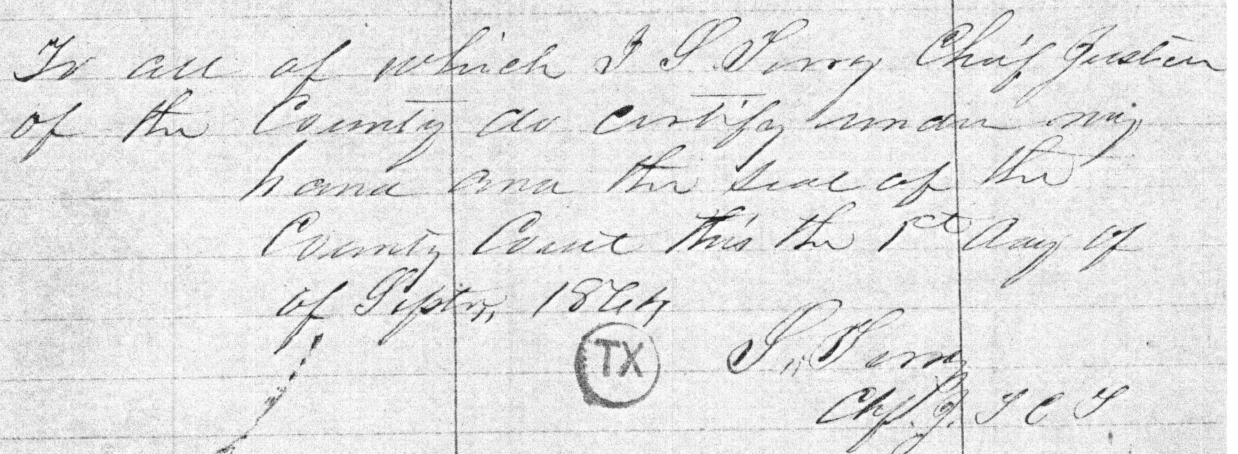 To all of which I S. Terry Chief Justice
of the County do certify under my
hand and the seal of the
County Court this the 1st day of
of Septr, 1864
TX
S. Terry
Chf. J. T C T